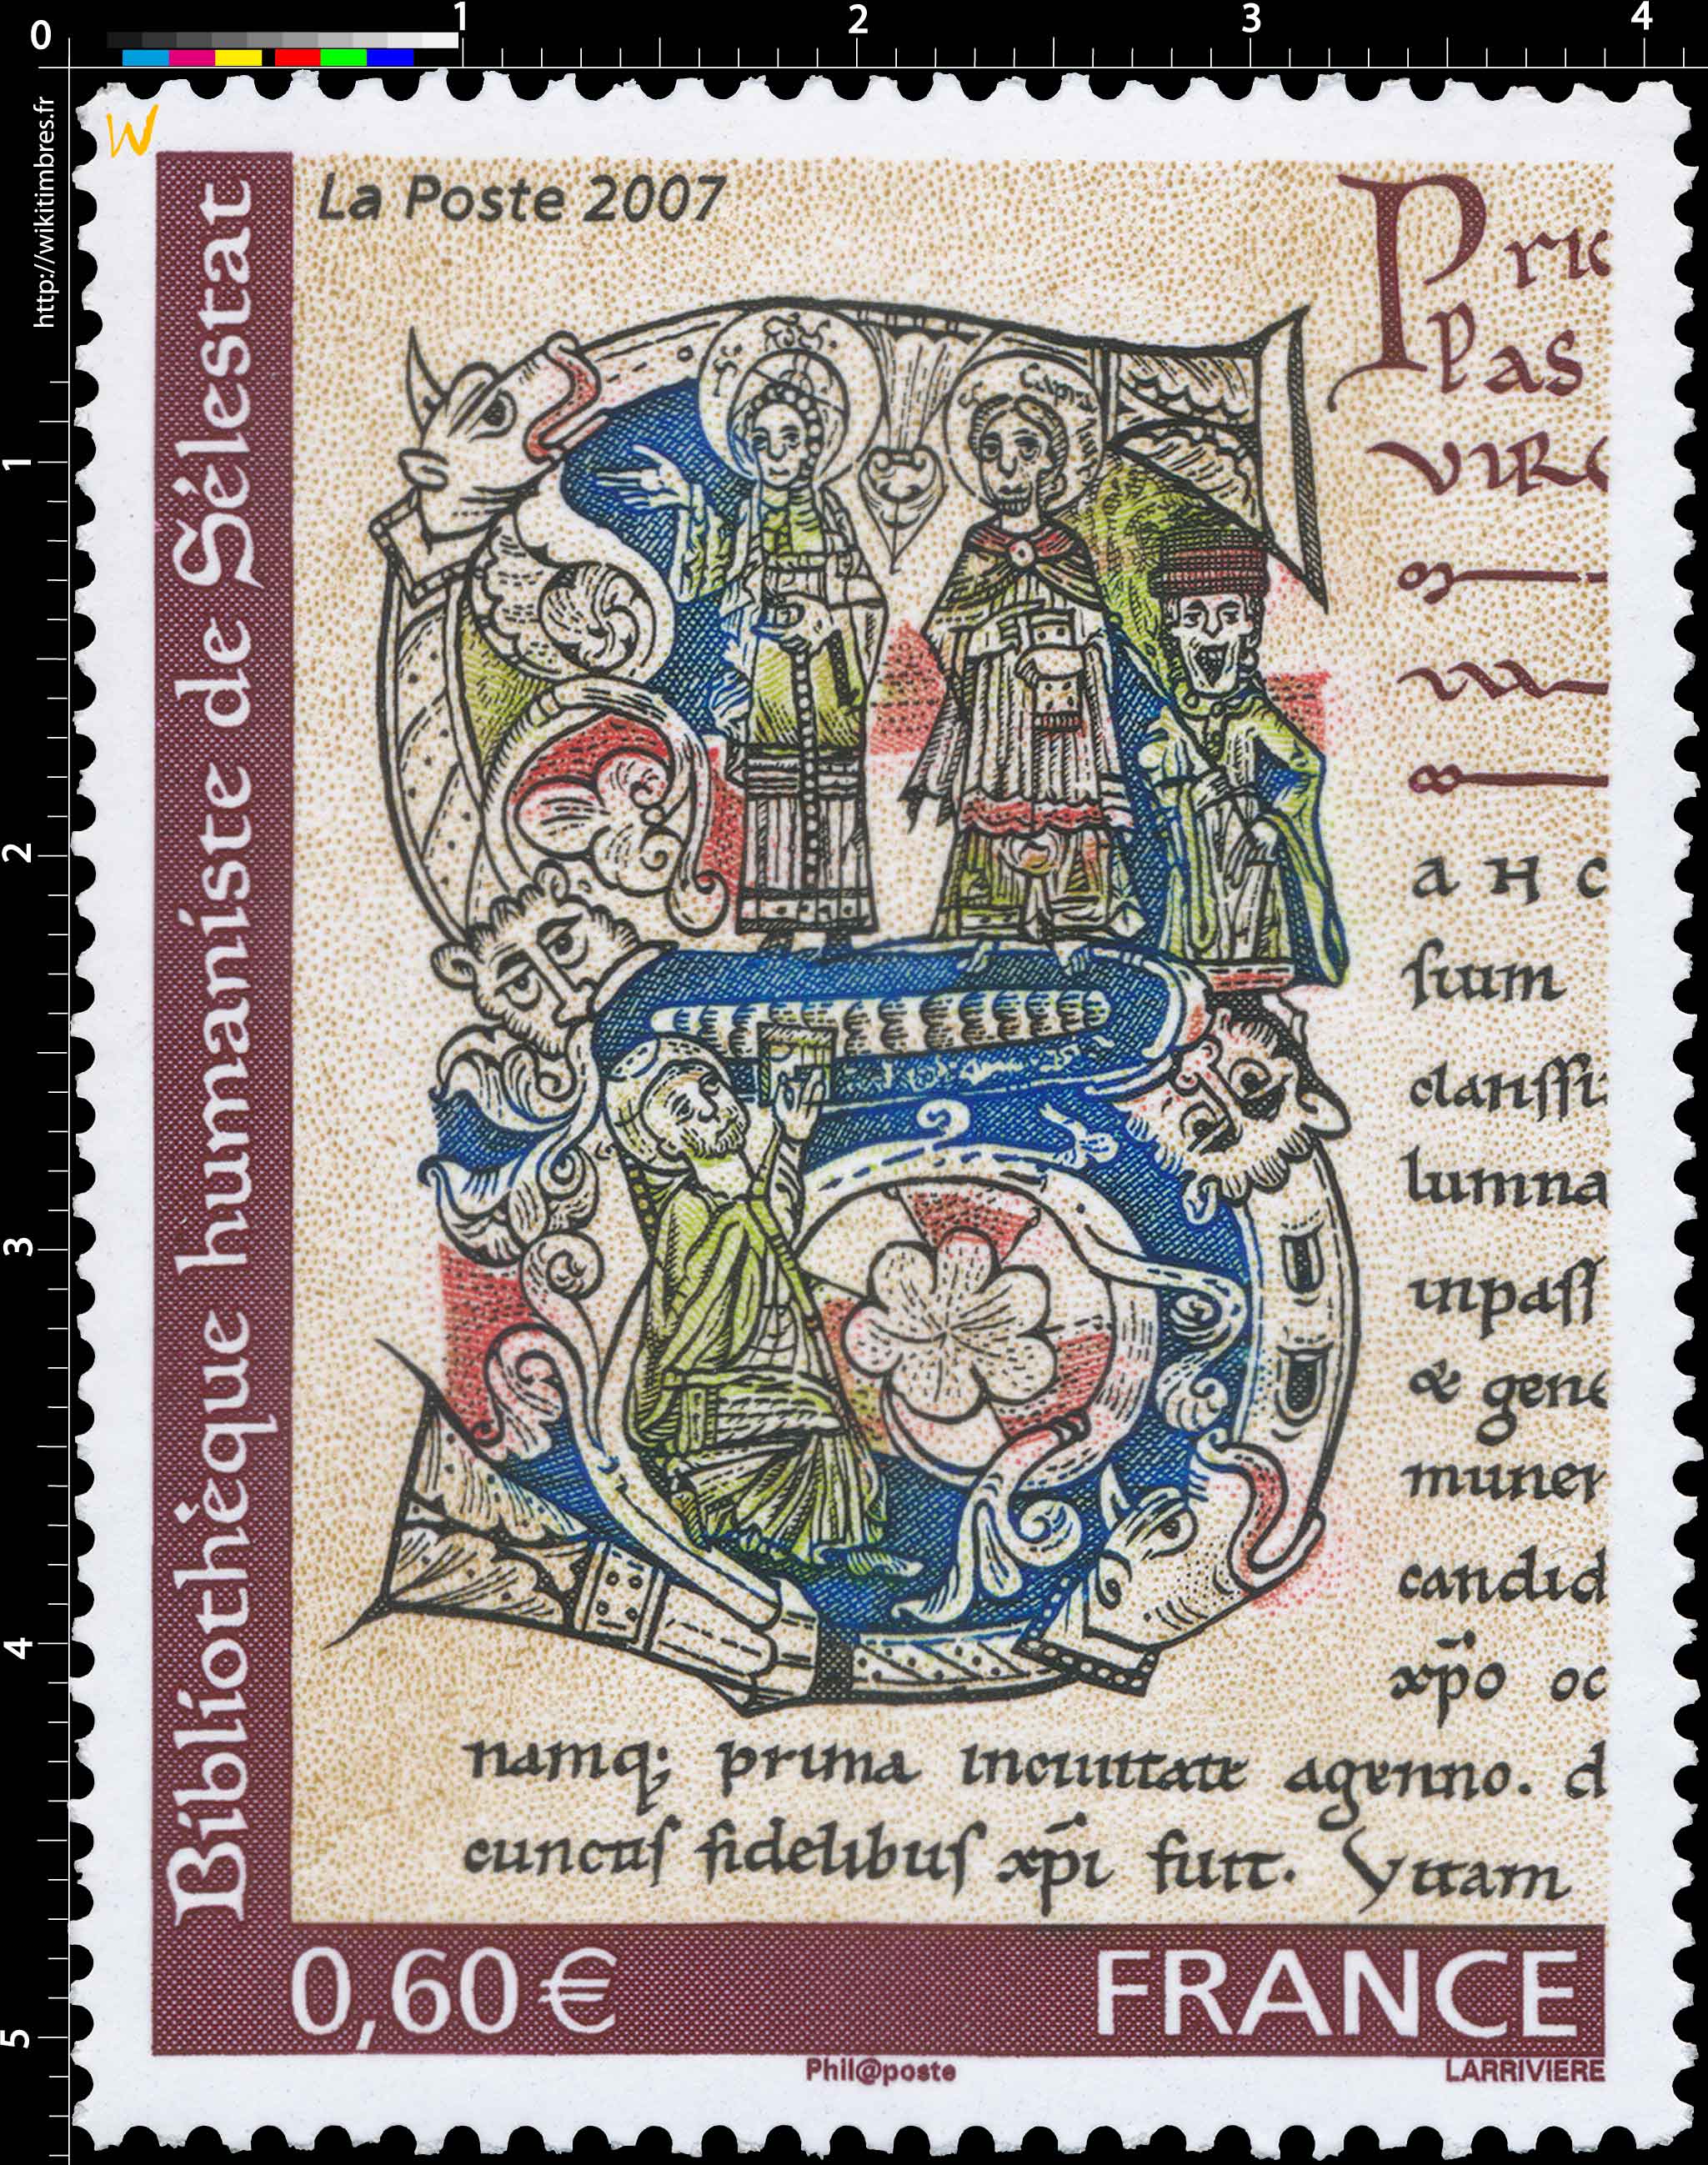 0 1 2 3 4
http://wikitimbres.fr
W
1
2
3
4
5
La Poste 2007
Bibliothèque humaniste de Sélestat
Pri
pas
VIR
a H c
ſium
clariſſi
lumna
inpaſſ
& gene
muner
candid
xp̄o oc
namq; prima inciuitate agenno. d
cunctiſ fidelibuſ xp̄i fuit. Vitam
0,60 € FRANCE
Phil@poste LARRIVIERE